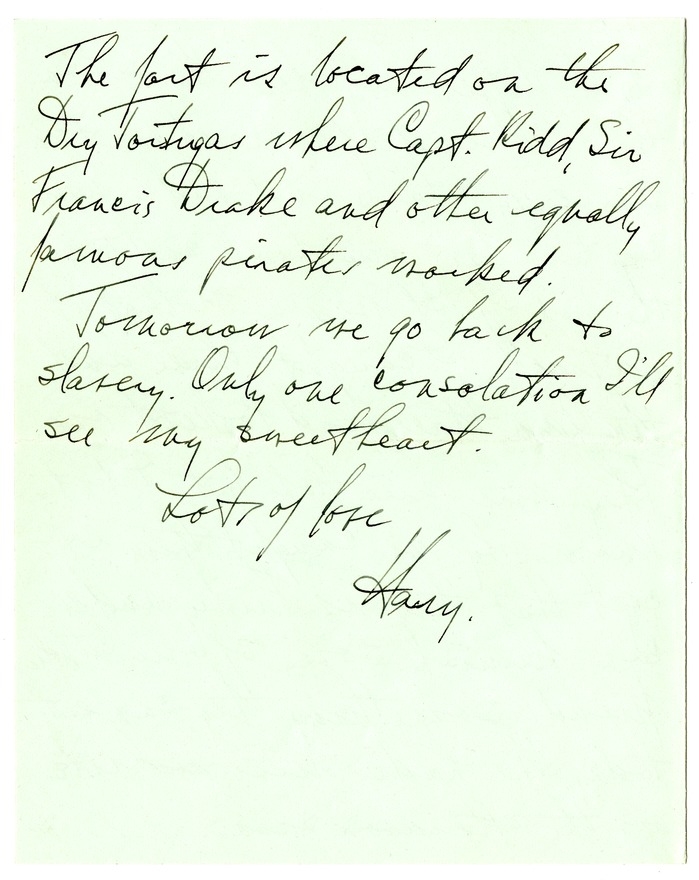 The fort is located on the
Dry Tortugas where Capt. Kidd, Sir
Francis Drake and other equally
famous pirates worked.
Tomorrow we go back to
slavery. Only one consolation I'll
see my sweetheart.
Lots of love
Harry.